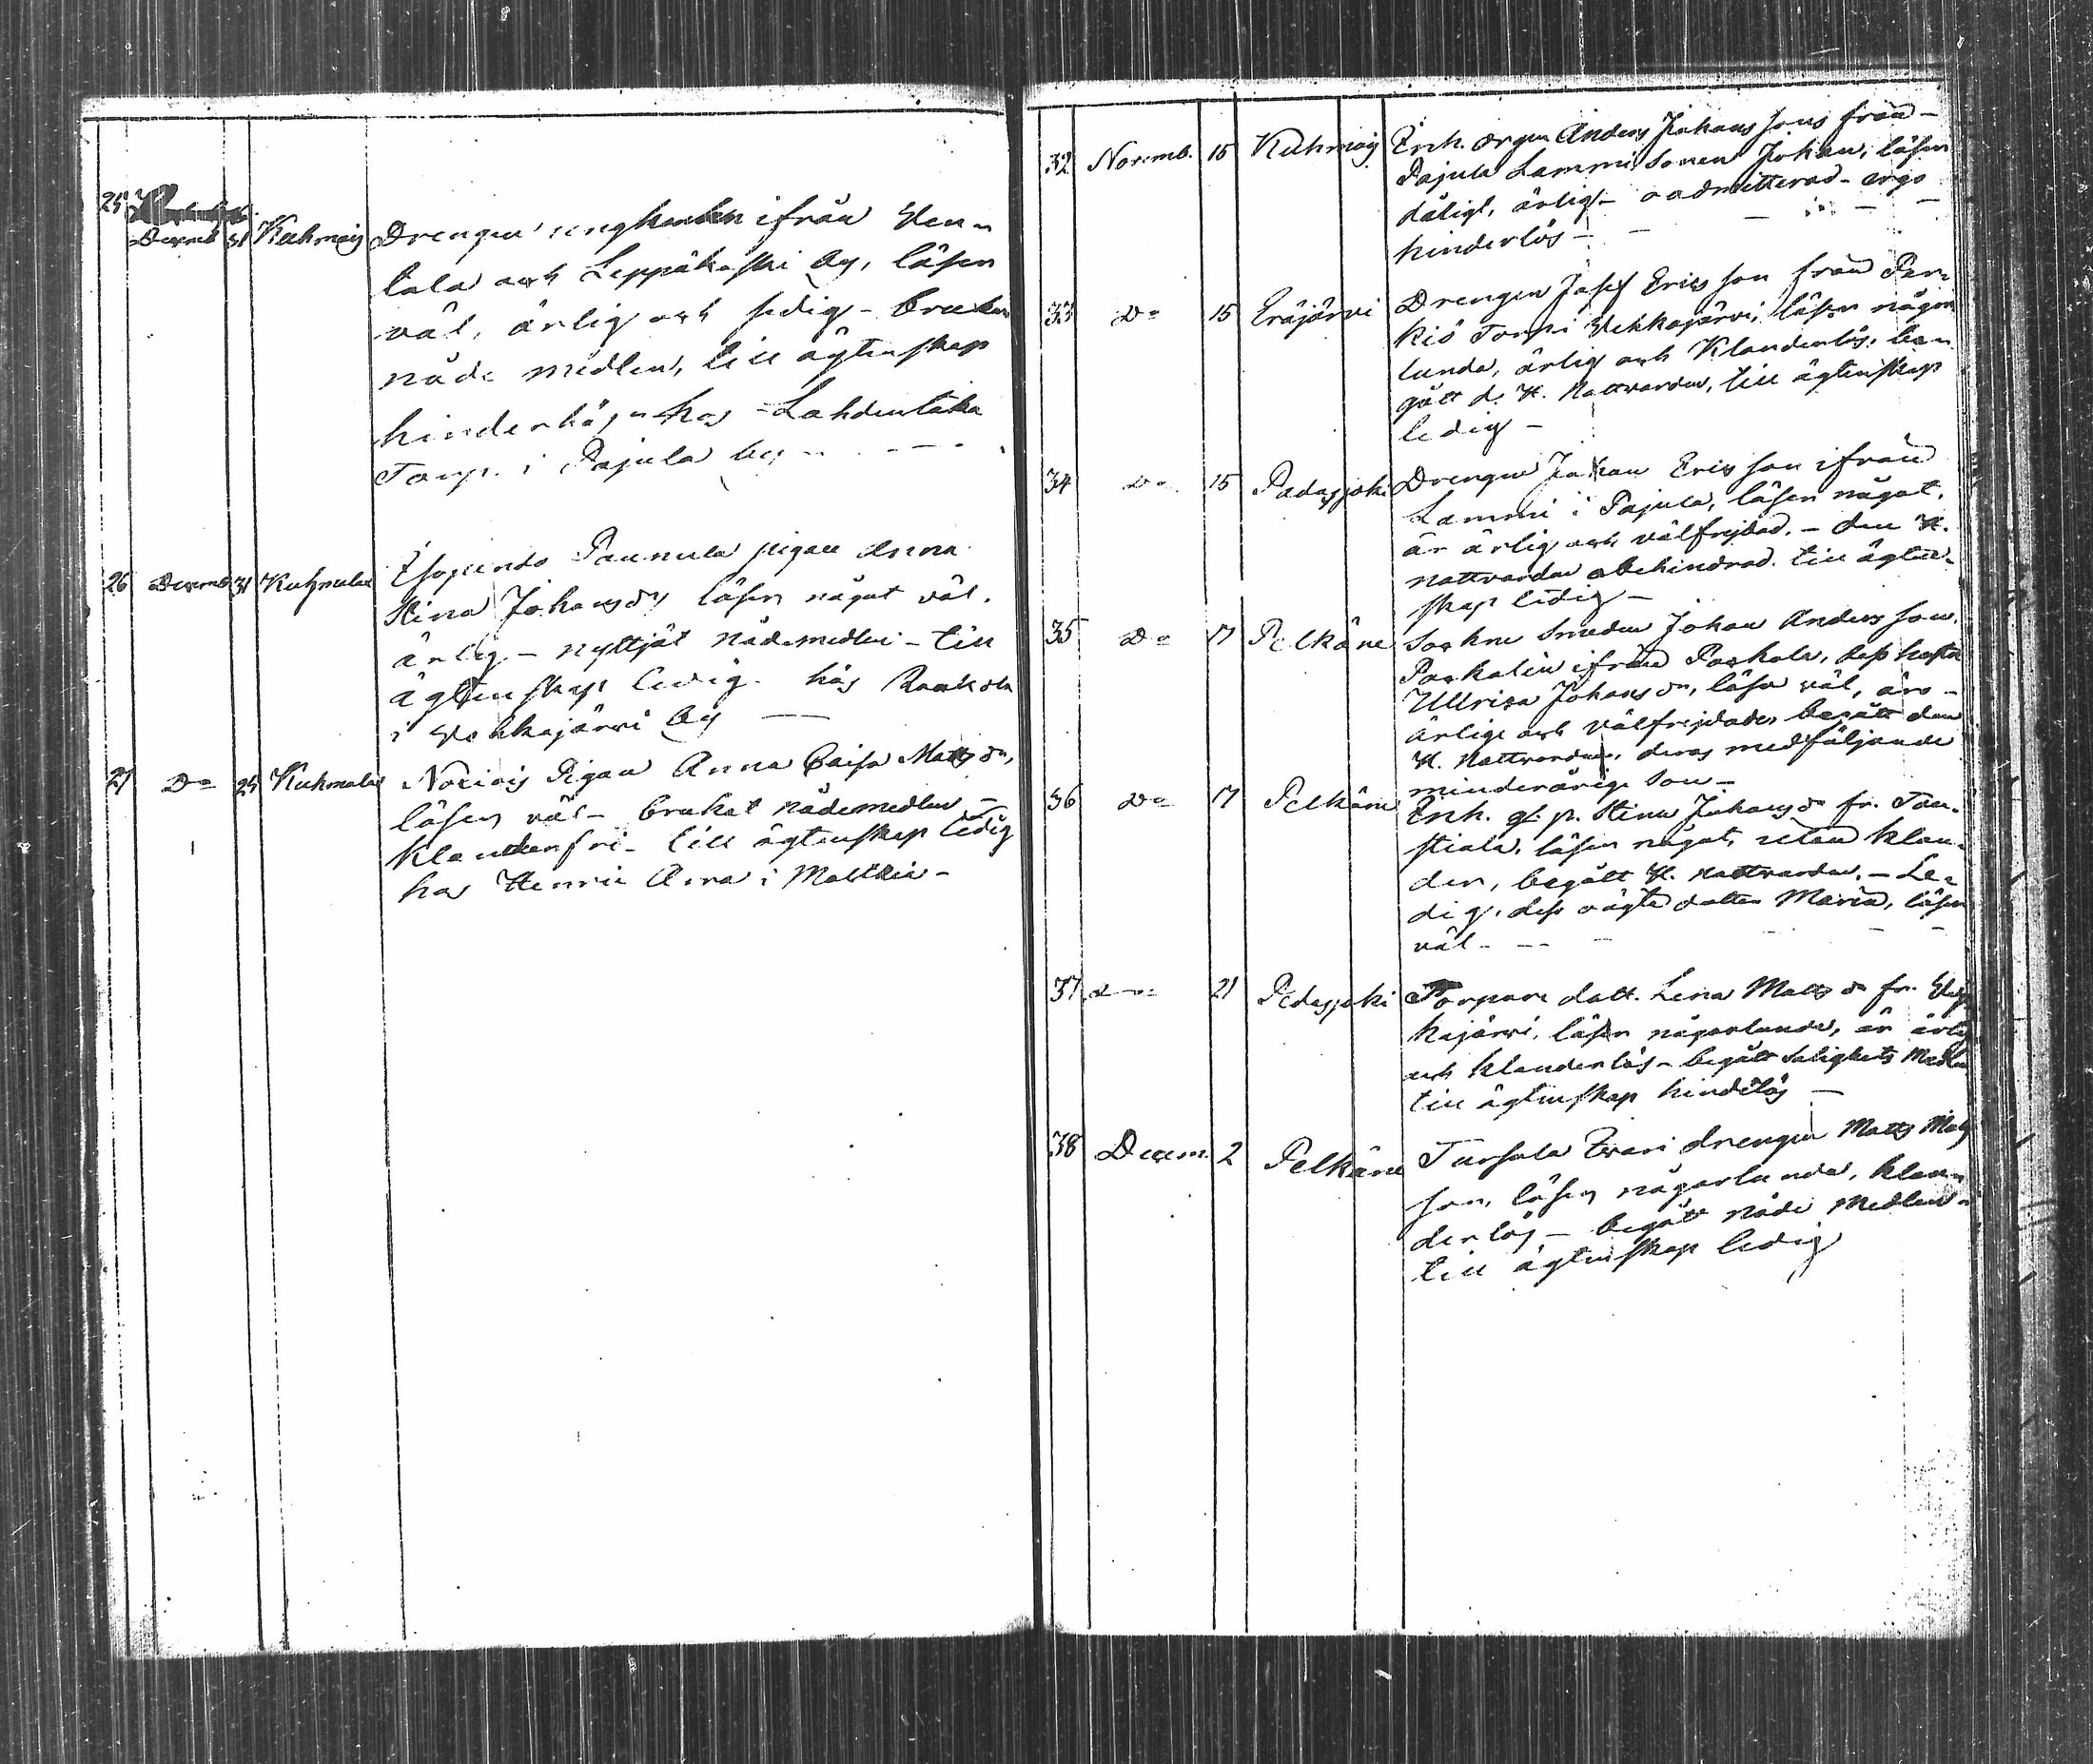 25 Decemb 31 Kuhmois Drengen ifrån Ven-
tala och Leppäkoski by, läser
väl, ärlig och sedig - brukar
nåde medlen, till ägtenskap
hinderlös - hos Lahdentaka
Torp. i Pajula by -
26 Decemb 31 Kuhmalax Paunula pigan Anna
Stina Johansdr läser något väl.
ärlig - nyttjat nådemedlen - till
ägtenskap ledig. hos
i Vehkajärvi by
27 Do 25 Kuhmalax Pigan Anna Caisa Matts dr,
läser väl - brukat nådemedlen -
klanderfri - till ägtenskap ledig
hos Henric i
32 Novemb. 15 Kuhmois Enk. Anders Johans sons från -
Pajula Lammi Sonen Johan, läser
dåligt, ärlig - oadmitterad - ergo
hinderlös -
33 Do 15 Eräjärvi Drengen Josef Erics son från
Vehkajärvi, läser någor
lunda, ärlig och Klanderlös, be-
gått d. H. Nattvarden, till ägtenskap
ledig -
34 Do 15 Padasjoki Drengen Johan Erics son ifrån
Lammi i Pajula, läser något,
är ärlig och välfrejdad. - den H.
nattvarden obehindrad. till ägten-
skap ledig -
35 Do 17 Pelkäne Sockne Smeden Johan Anders son
ifrån dess hustru
Ullrica Johans dr, läsa väl, äro -
ärlige och välfrejdade, begått den
H. Nattvarden, deras medföljande
minderårige son -
36 Do 17 Pelkäne Enk. qf. p. Stina Johans dr fr. Tau-
stiala, läser något, utan klan-
der, begått H. Nattvarden, - Le-
dig, dess oägta dotter Maria, läser
väl -
37 Do 21 Padasjoki Torpare dott. Lena Matts dr fr. Veh-
kajärvi, läser någorlunda, är ärlig
och klanderlös - begått Salighets Medlen
till ägtenskap hinderlös -
38 Decem. 2 Pelkäne Tursola drengen Matts Matts
son, läser någorlunda, klan-
derlös - begått nåde medlen -
till ägtenskap ledig